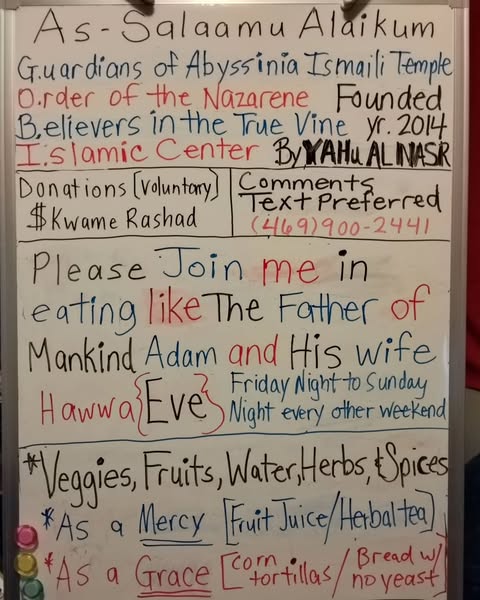 As-Salaamu Alaikum
G.uardians of Abyssinia Ismaili Temple
O.rder of the Nazarene Founded
B.elievers in the True Vine yr. 2014
I.slamic Center By YAHu ALNASR
Donations [Voluntary]
$Kwame Rashad
Comments
Text Preferred
(469)900-2441
Please Join me in
eating like The Father of
Mankind Adam and His wife
Hawwa {Eve} Friday Night to Sunday
Night every other weekend
*Veggies, Fruits, Water, Herbs, & Spices
*As a Mercy [Fruit Juice/Herbal tea]
*As a Grace [corn tortillas/Bread w/
no yeast]